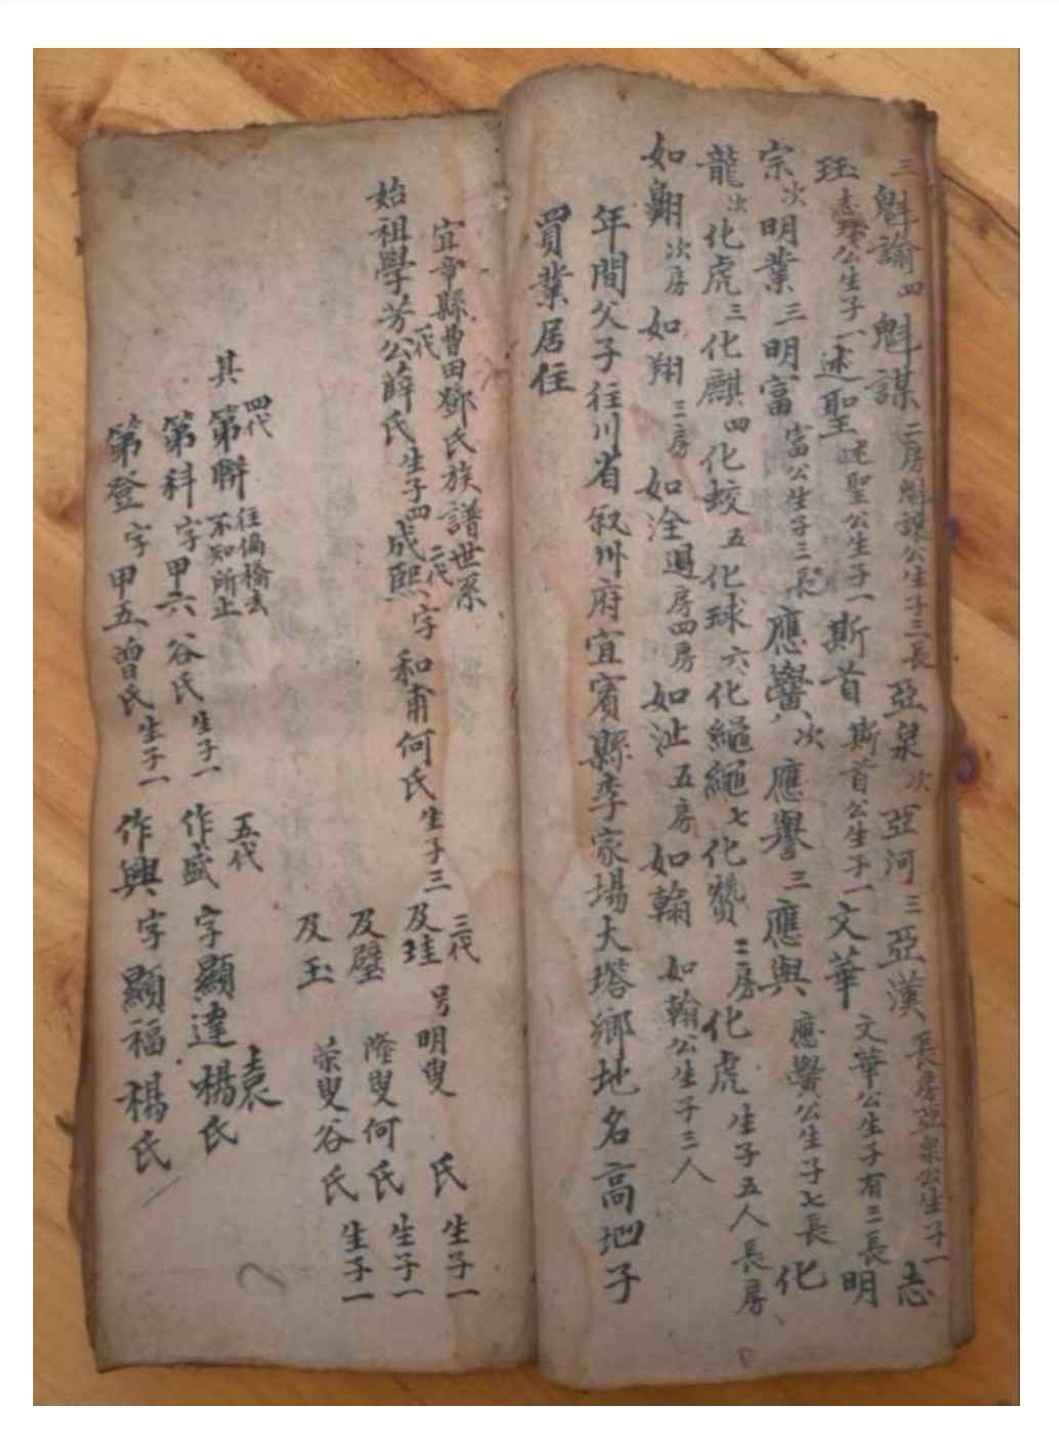 三魁諭四魁謀二房魁謀公生子三長亞泉次亞河三亞漢長房亞泉公生子一志
珏志珏公生子一述聖述聖公生子一斯首斯首公生子一文華文華公生子有三長明
宗次明業三明富富公生子三長應黌次應譽三應與應黌公生子七長化
龍次化虎三化麒四化蛟五化球六化繩繩七化贊三房化虎生子五人長房
如翱次房如翔三房如淦過房四房如沚五房如翰如翰公生子三人
年間父子往川省叙州府宜賓縣李家場大塔鄉地名高地子
買業居住
宜章縣曹田鄧氏族譜世系
始祖學芳公薛氏生子四二代成熙字和甫何氏生子三三代及珪号明叟氏生子一
及璧隆叟何氏生子一
及玉榮叟谷氏生子一
四代
其第聨往偏橋去不知所止
第科字甲六谷氏生子一五代作盛字顯達楊氏袁
第登字甲五曾氏生子一作興字顯福楊氏